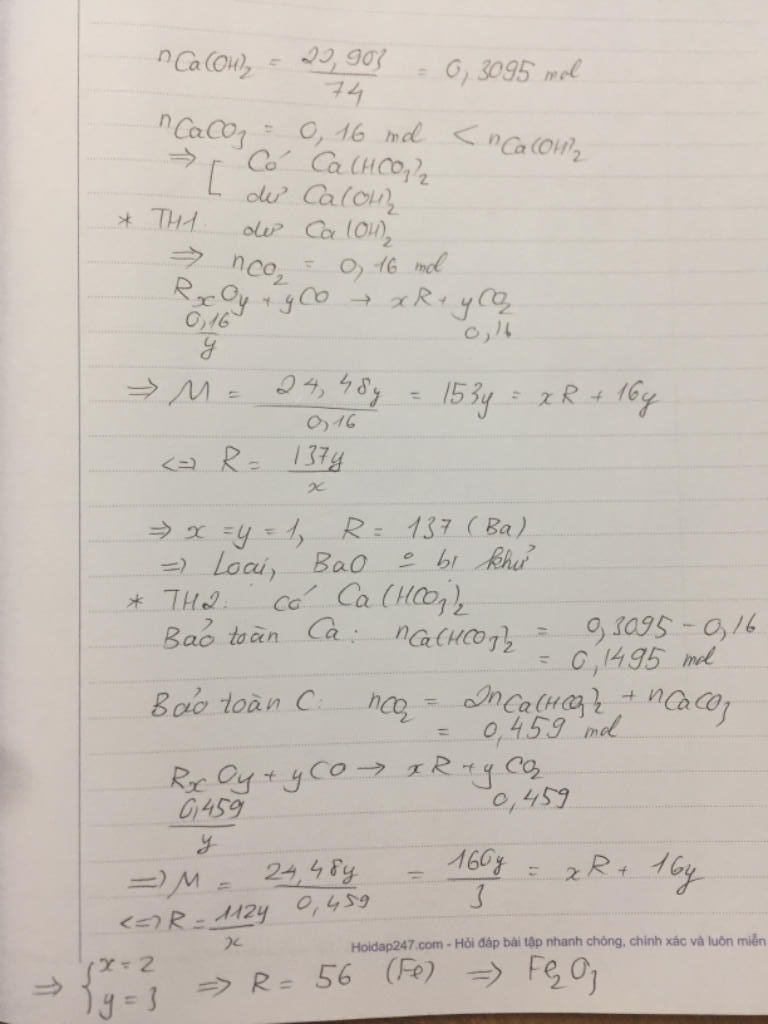 nCa(OH)₂ = 22,903/74 = 0,3095 mol
nCaCO₃ = 0,16 mol < nCa(OH)₂
⇒ [ Có Ca(HCO₃)₂
dư Ca(OH)₂
* TH1: dư Ca(OH)₂
⇒ nCO₂ = 0,16 mol
RₓOy + yCO → xR + yCO₂
0,16/y 0,16
⇒ M = 24,48y/0,16 = 153y = xR + 16y
<=> R = 137y/x
⇒ x = y = 1, R = 137 (Ba)
⇒ Loại, BaO º bị khử
* TH2: có Ca(HCO₃)₂
Bảo toàn Ca: nCa(HCO₃)₂ = 0,3095 - 0,16
= 0,1495 mol
Bảo toàn C: nCO₂ = 2nCa(HCO₃)₂ + nCaCO₃
= 0,459 mol
RₓOy + yCO → xR + yCO₂
0,459/y 0,459
=> M = 24,48y/0,459 = 160y/3 = xR + 16y
<=> R = 112y/x
Hoidap247.com - Hỏi đáp bài tập nhanh chóng, chính xác và luôn miễn
⇒ { x = 2 y = 3 ⇒ R = 56 (Fe) ⇒ Fe₂O₃